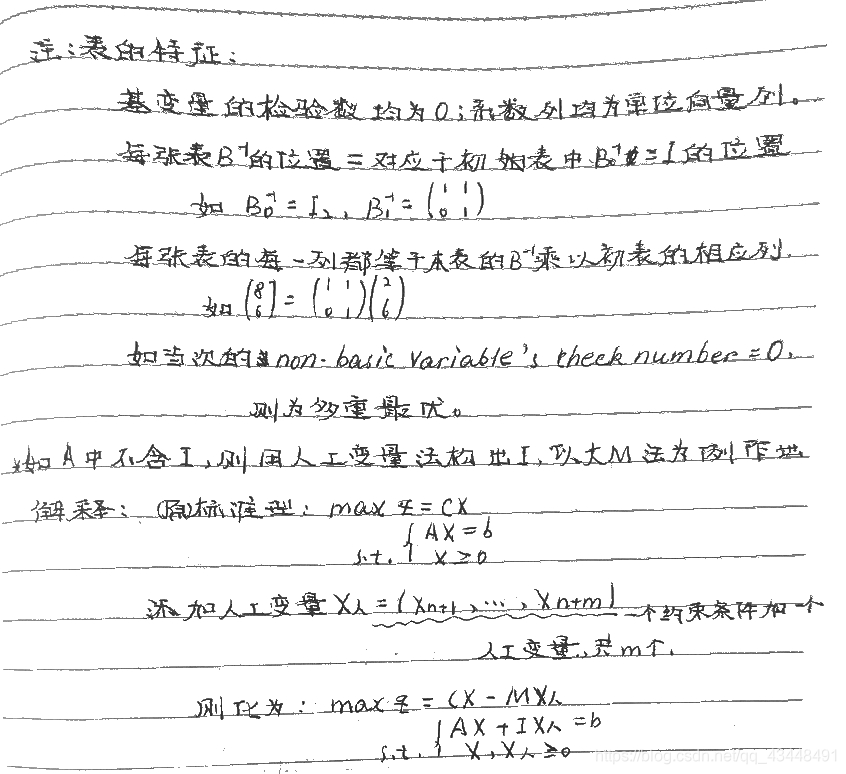 注:表的特征:
基变量的检验数均为0;系数列均为单位向量列。
每张表B⁻¹的位置=对应于初始表中B₀⁻¹=I的位置
如 B₀⁻¹=I₂, B₁⁻¹=(1 1
0 1)
每张表的每一列都等于本表的B⁻¹乘以初表的相应列.
如(8
6)=(1 1
0 1)(2
6)
如当次的non-basic variable's check number=0.
则为多重最优。
*如A中不含I,则用人工变量法构出I,以大M法为例作出
解释: (原)标准型: max z=CX
s.t. { AX=b
X≥0
添加人工变量X人=(Xn+1,…,Xn+m) 一个约束条件加一个
人工变量,共m个.
则化为: max z=CX-MX人
s.t. { AX+IX人=b
X,X人≥0
https://blog.csdn.net/qq_43448491